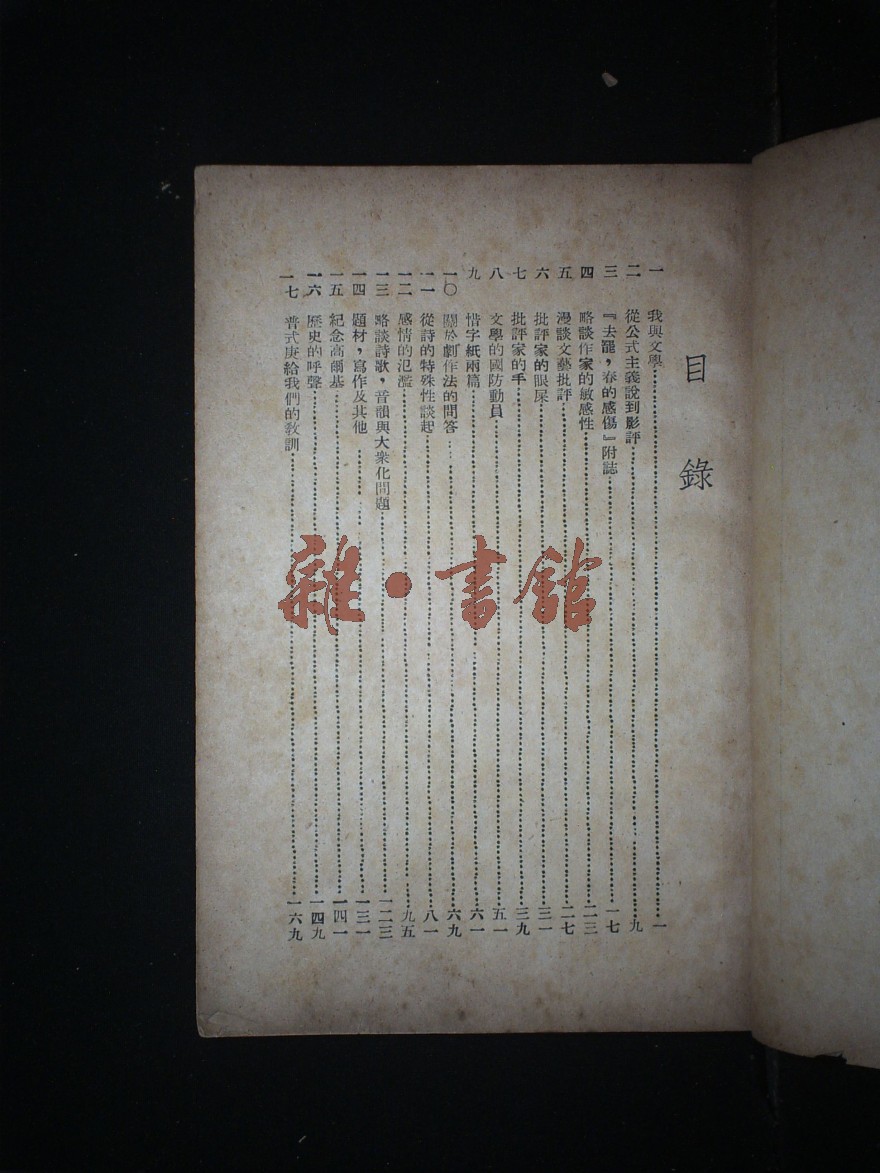 目錄
一 我與文學 一
二 從公式主義說到影評 九
三 『去罷，春的感傷』附誌 一七
四 略談作家的敏感性 二三
五 漫談文藝批評 二七
六 批評家的眼屎 三一
七 批評家的手 三九
八 文學的國防動員 五一
九 惜字紙兩篇 六一
一〇 關於劇作法的問答 六九
一一 從詩的特殊性談起 八一
一二 感情的氾濫 九五
一三 略談詩歌，音韻與大衆化問題 一二三
一四 題材，寫作及其他 一三一
一五 紀念高爾基 一四一
一六 歷史的呼聲 一四九
一七 普式庚給我們的敎訓 一六九
雜·書館